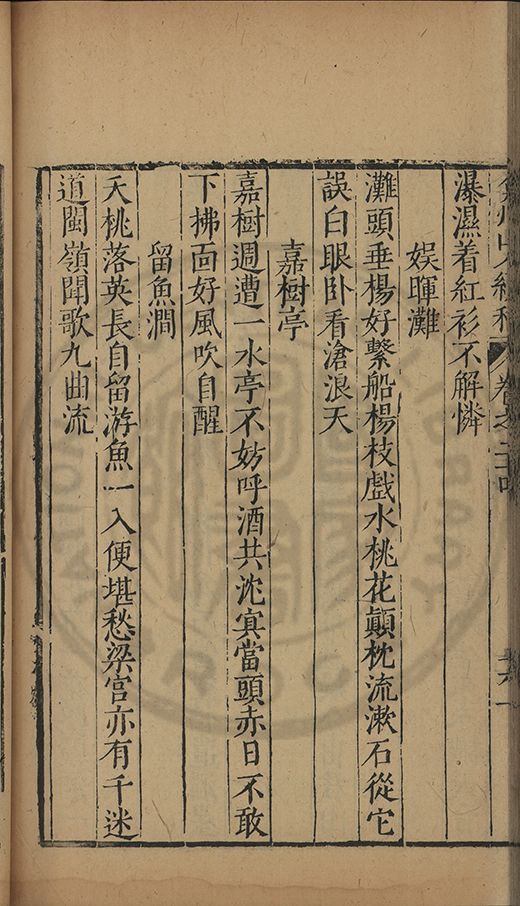 瀑濕着紅衫不解憐
娛暉灘
灘頭垂楊好繫船楊枝戲水桃花顛枕流漱石從它
誤白眼臥看滄浪天
嘉樹亭
嘉樹週遭一水亭不妨呼酒共沈冥當頭赤日不敢
下拂面好風吹自醒
留魚澗
夭桃落英長自留游魚一入便堪愁梁宮亦有千迷
道閩嶺聞歌九曲流